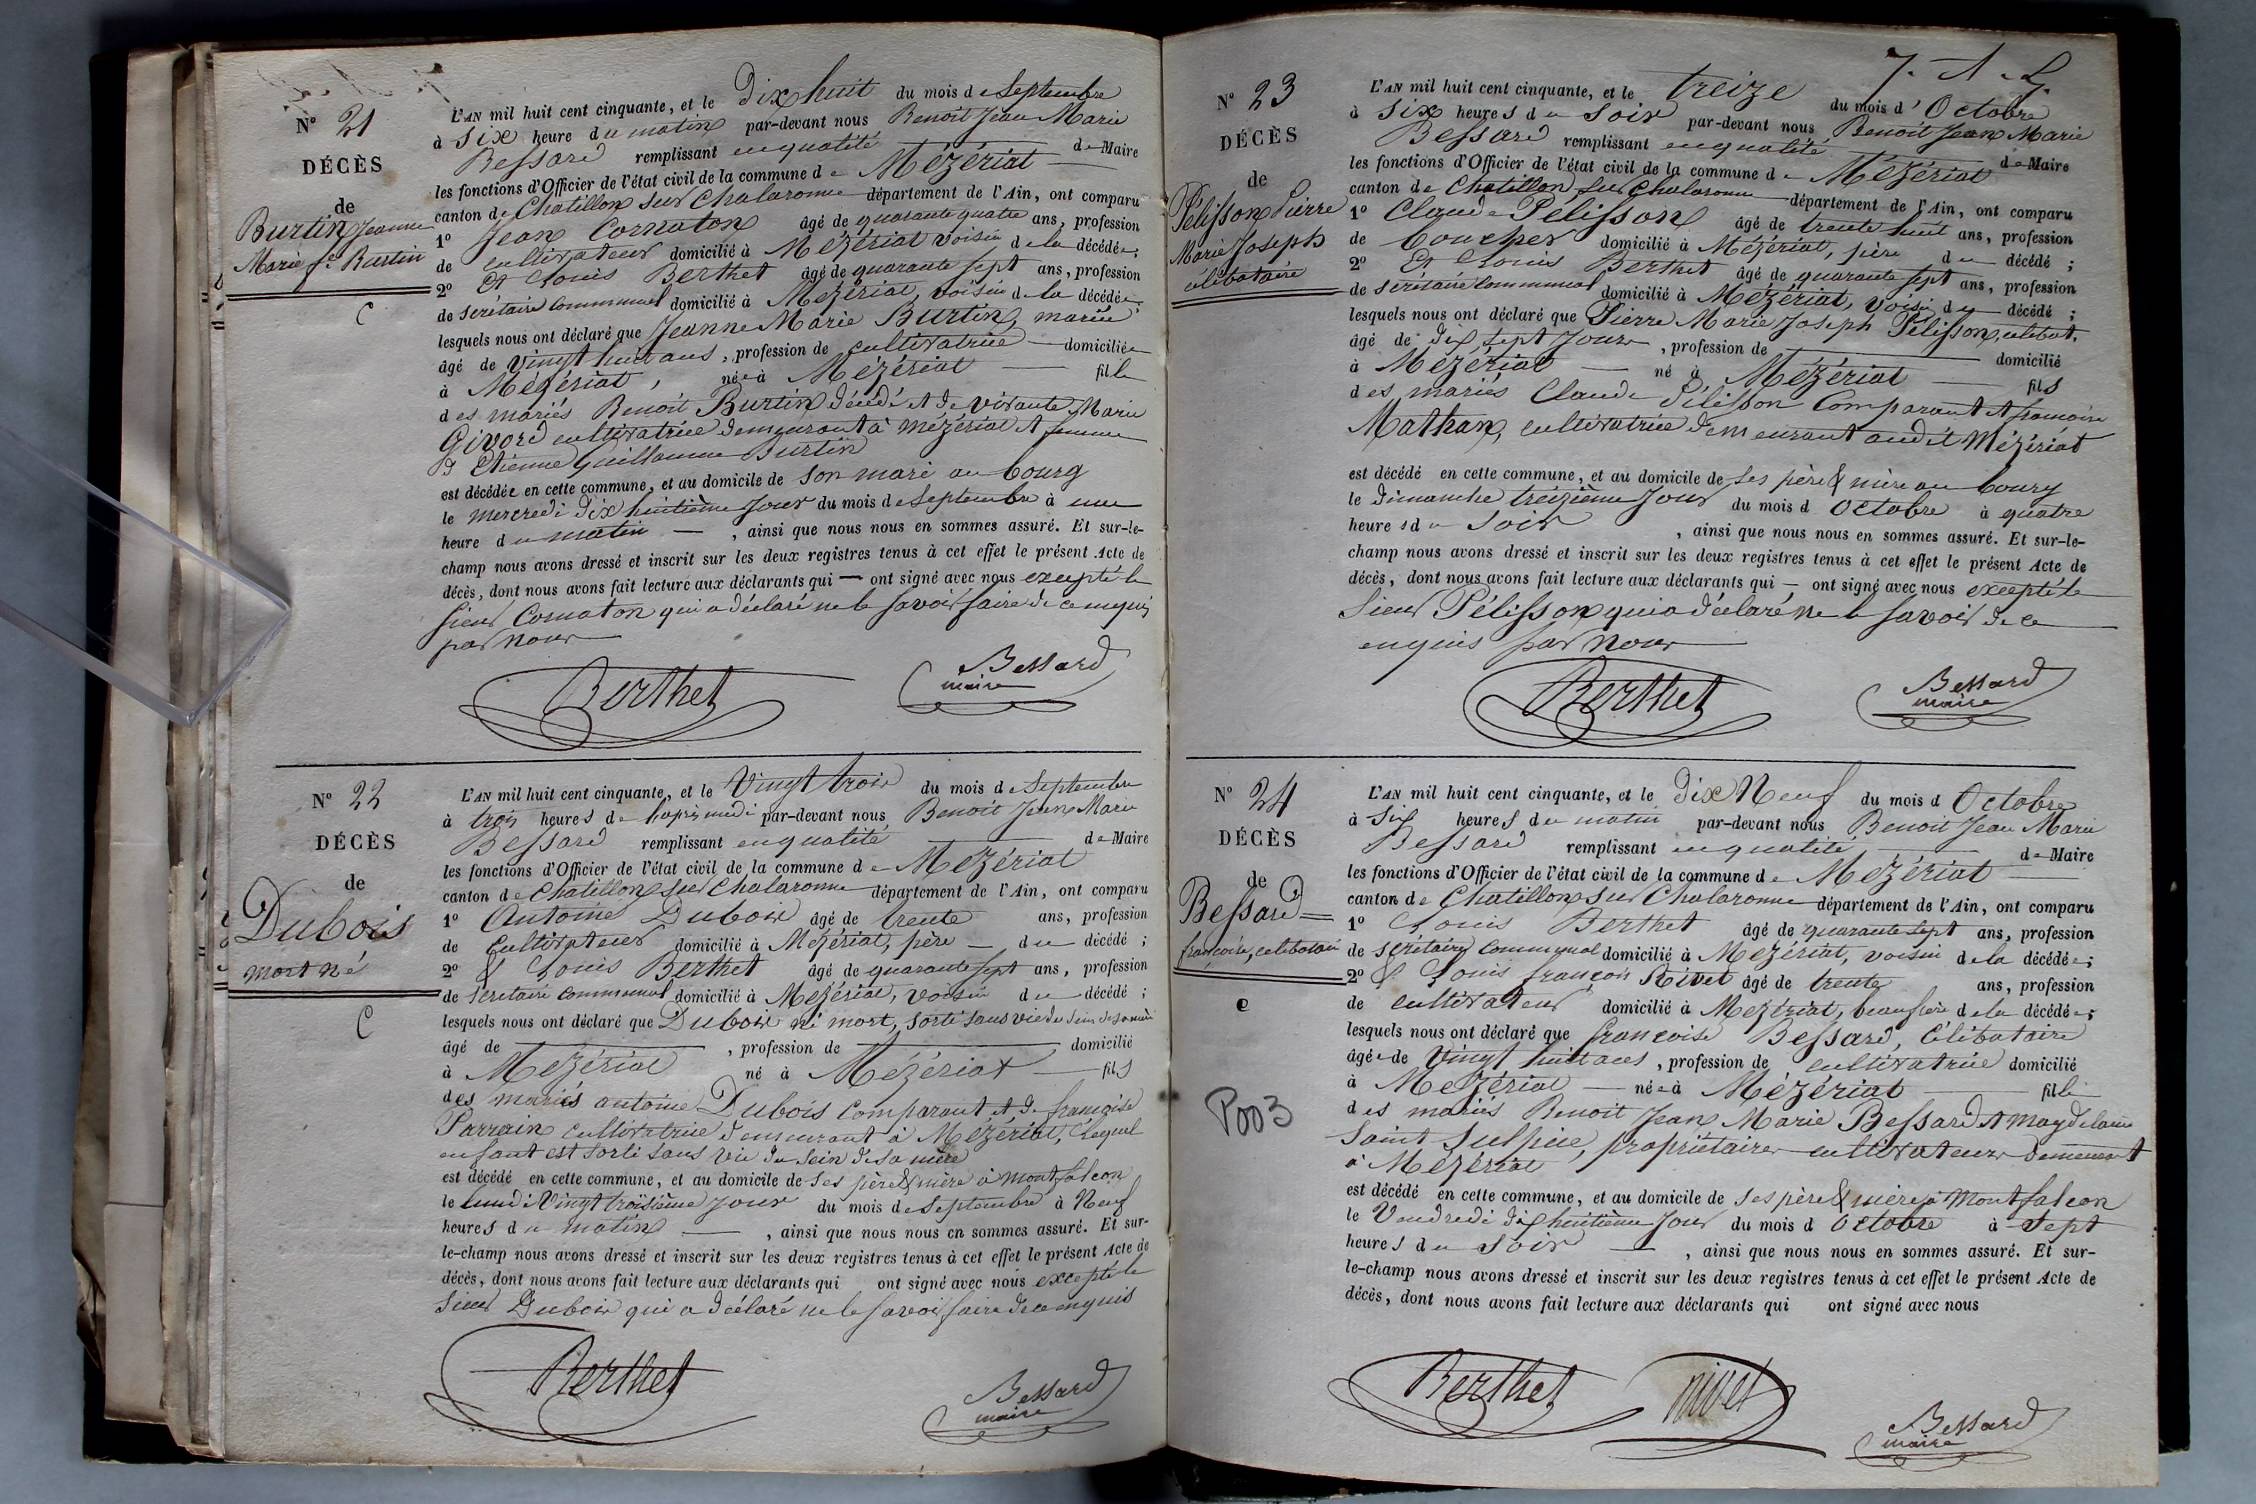 N° 21
DÉCÈS
de
Burtin Jeanne
Marie fe Burtin
C
L'AN mil huit cent cinquante, et le Dix huit du mois de Septembre
à Six heure du matin par-devant nous Benoit Jean Marie
Bessard remplissant en qualité de Maire
les fonctions d'Officier de l'état civil de la commune de Mézériat
canton de Chatillon sur Chalaronne département de l'Ain, ont comparu
1° Jean Cornaton âgé de quarante quatre ans, profession
de cultivateur domicilié à Mézériat voisin de la décédée;
2° Et Louis Berthet âgé de quarante sept ans, profession
de Secrétaire Communal domicilié à Mézériat, voisin de la décédée;
lesquels nous ont déclaré que Jeanne Marie Burtin, mariée
âgé de vingt huit ans, profession de cultivatrice domiciliée
à Mézériat, née à Mézériat fille
des mariés Benoit Burtin décédé et de vivante Marie
Givord cultivatrice demeurant à Mézériat et femme
d'Etienne Guillaume Burtin
est décédée en cette commune, et au domicile de son mari au bourg
le mercredi dix huitième jour du mois de Septembre à une
heure du matin , ainsi que nous nous en sommes assuré. Et sur-le-
champ nous avons dressé et inscrit sur les deux registres tenus à cet effet le présent Acte de
décès, dont nous avons fait lecture aux déclarants qui — ont signé avec nous excepté le
sieur Cornaton qui a déclaré ne le savoir faire de ce enquis
par nous
Berthet
Bessard
maire
N° 22
DÉCÈS
de
Dubois
mort né
C
L'AN mil huit cent cinquante, et le Vingt trois du mois de Septembre
à trois heures de l'après midi par-devant nous Benoit Jean Marie
Bessard remplissant en qualité de Maire
les fonctions d'Officier de l'état civil de la commune de Mézériat
canton de Chatillon sur Chalaronne département de l'Ain, ont comparu
1° Antoine Dubois âgé de trente ans, profession
de Cultivateur domicilié à Mézériat, père — du décédé;
2° & Louis Berthet âgé de quarante sept ans, profession
de Secrétaire Communal domicilié à Mézériat, voisin du décédé;
lesquels nous ont déclaré que Dubois né mort, sorti sans vie du sein de sa mère
âgé de , profession de domicilié
à Mézériat né à Mézériat fils
des mariés antoine Dubois comparant et de françoise
Parrain cultivatrice demeurant à Mézériat, lequel
enfant est sorti sans vie du sein de sa mère
est décédé en cette commune, et au domicile de ses père & mère à Montfalcon
le lundi Vingt troisième jour du mois de Septembre à Neuf
heures du matin , ainsi que nous nous en sommes assuré. Et sur-
le-champ nous avons dressé et inscrit sur les deux registres tenus à cet effet le présent Acte de
décès, dont nous avons fait lecture aux déclarants qui ont signé avec nous excepté le
Sieur Dubois qui a déclaré ne le savoir faire de ce enquis
Berthet
Bessard
maire
N° 23
DÉCÈS
de
Pélisson Pierre
Marie Joseph
célibataire
L'AN mil huit cent cinquante, et le treize du mois d'Octobre
à Six heures du Soir par-devant nous Benoit Jean Marie
Bessard remplissant en qualité de Maire
les fonctions d'Officier de l'état civil de la commune de Mézériat
canton de Chatillon sur Chalaronne département de l'Ain, ont comparu
1° Claude Pélisson âgé de trente huit ans, profession
de boucher domicilié à Mézériat, père du décédé;
2° Et Louis Berthet âgé de quarante sept ans, profession
de Secrétaire Communal domicilié à Mézériat, voisin du décédé;
lesquels nous ont déclaré que Pierre Marie Joseph Pélisson, célibat.
âgé de dix sept jours , profession de domicilié
à Mézériat né à Mézériat fils
des mariés Claude Pélisson Comparant et françoise
Mathan, cultivatrice demeurant au dit Mézériat
est décédé en cette commune, et au domicile de ses père & mère au bourg
le dimanche treizième jour du mois d Octobre à quatre
heures du Soir , ainsi que nous nous en sommes assuré. Et sur-le-
champ nous avons dressé et inscrit sur les deux registres tenus à cet effet le présent Acte de
décès, dont nous avons fait lecture aux déclarants qui — ont signé avec nous excepté le
Sieur Pélisson qui a déclaré ne le savoir de ce
enquis par nous
Berthet
Bessard
maire
N° 24
DÉCÈS
de
Bessard
françoise, célibataire
e
P003
L'AN mil huit cent cinquante, et le Dix Neuf du mois d Octobre
à Six heures du matin par-devant nous Benoit Jean Marie
Bessard remplissant en qualité de Maire
les fonctions d'Officier de l'état civil de la commune de Mézériat
canton de Chatillon sur Chalaronne département de l'Ain, ont comparu
1° Louis Berthet âgé de quarante sept ans, profession
de Secrétaire Communal domicilié à Mézériat, voisin de la décédée;
2° & Louis françois Nivet âgé de trente ans, profession
de cultivateur domicilié à Mézériat, beaufrère de la décédée;
lesquels nous ont déclaré que françoise Bessard, Célibataire
âgée de Vingt huit ans , profession de cultivatrice domicilié
à Mézériat née à Mézériat fille
des mariés Benoit Jean Marie Bessard et Magdelaine
Saint Sulpice, propriétaires cultivateurs demeurant
à Mézériat
est décédé en cette commune, et au domicile de ses père & mère à Montfalcon
le Vendredi dix huitième jour du mois d Octobre à Sept
heures du Soir , ainsi que nous nous en sommes assuré. Et sur-
le-champ nous avons dressé et inscrit sur les deux registres tenus à cet effet le présent Acte de
décès, dont nous avons fait lecture aux déclarants qui ont signé avec nous
Berthet
nivet
Bessard
maire